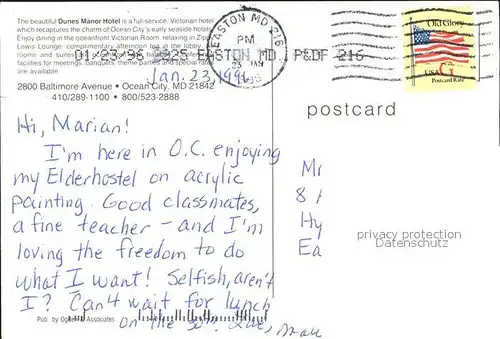 The beautiful Dunes Manor Hotel is a full-service, Victorian hotel
which recaptures the charm of Ocean City's early seaside hotels.
Enjoy dining in the oceanfront Victorian Room, relaxing in
Lewis Lounge, complimentary afternoon tea in the lobby,
rooms and suites
facilities for meetings, banquets, theme parties and special
are available.
EASTON MD 216
PM
23 JAN
01-23-96 EASTON MD P&DF 216
Jan. 23, 1996
2800 Baltimore Avenue • Ocean City, MD 21842
410/289-1100 • 800/523-2888
Old Glory
USA G
Postcard Rate
postcard
Hi, Marian!
I'm here in O.C. enjoying
my Elderhostel on acrylic
painting. Good classmates,
a fine teacher – and I'm
loving the freedom to do
what I want! Selfish, aren't
I? Can't wait for lunch
on the 30th. Love,
Pub. by Associates
Mr
8
Hy
Ea
privacy protection
Datenschutz